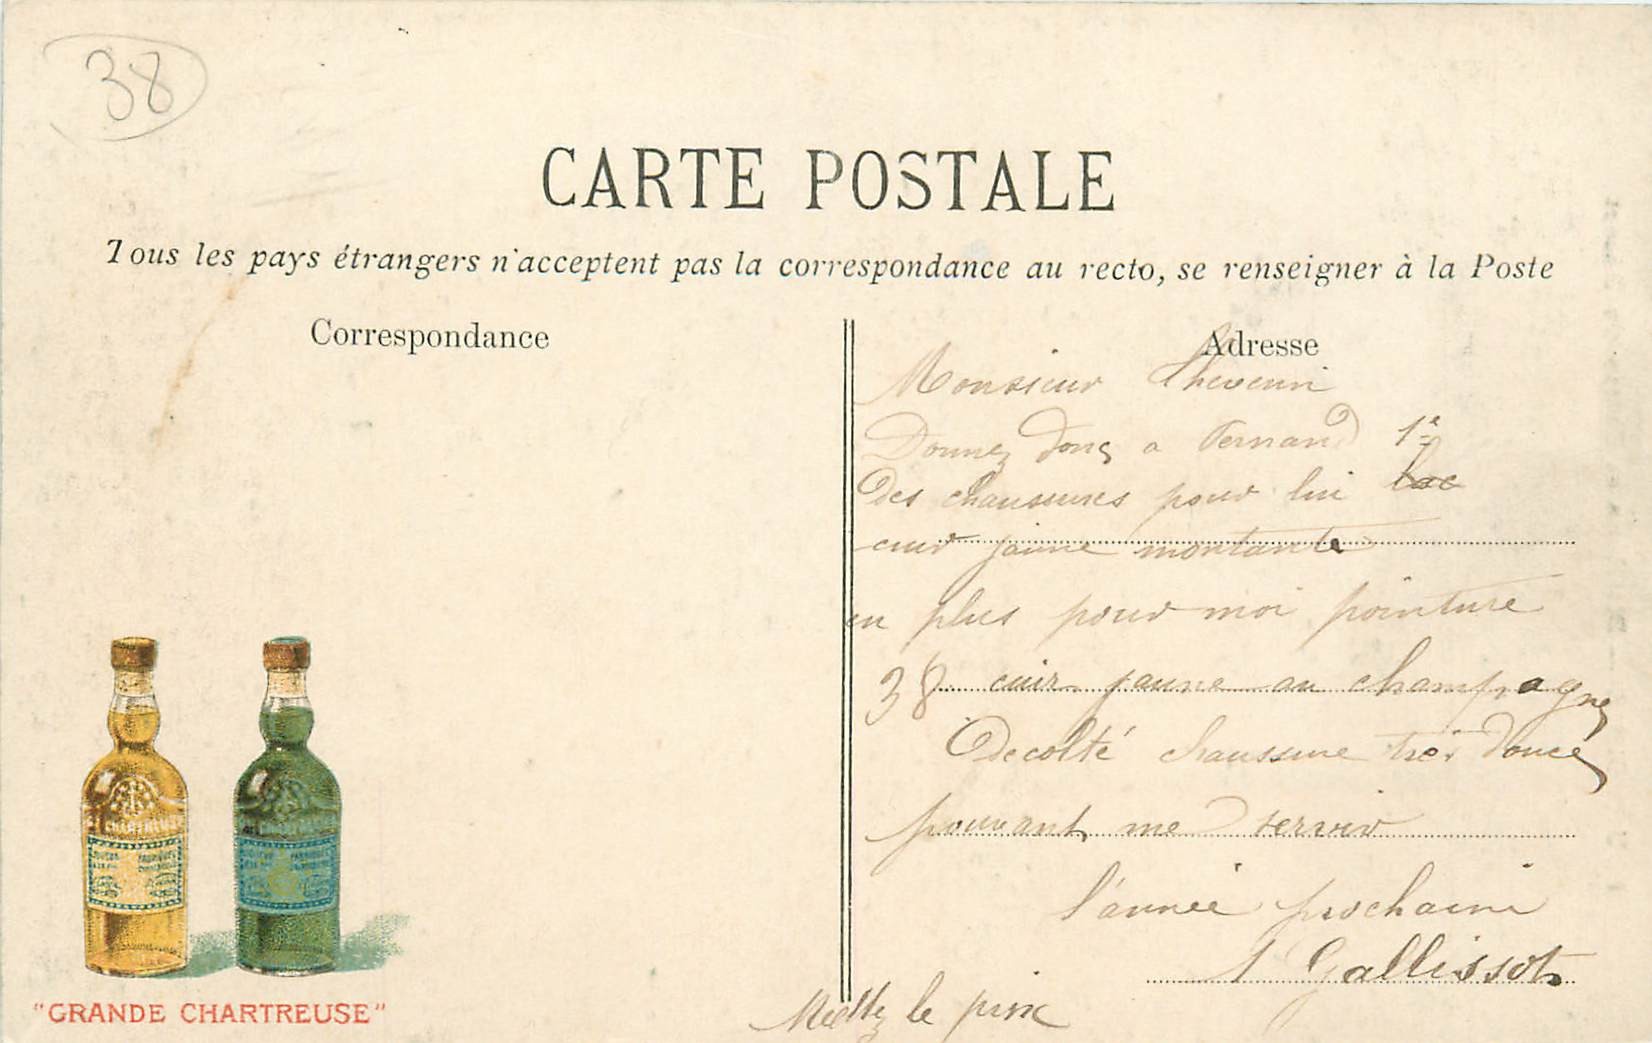 38
CARTE POSTALE
Tous les pays étrangers n'acceptent pas la correspondance au recto, se renseigner à la Poste
Correspondance
Adresse
Monsieur Thevenin
Donnez donc a Fernand 1e
Des chaussures pour lui
cuir jaune montante
en plus pour moi pointure
38 cuir jaune ou champagne
Decolté chaussure très douce
pouvant me servir
l'année prochaine
Gallissot
Mettez le prix
CHARTREUSE
"GRANDE CHARTREUSE"